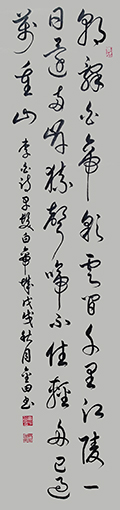 朝辭白帝彩雲間千里江陵一
日還兩岸猿聲啼不住輕舟已過
萬重山 李白詩早發白帝城戊戌秋月金田书